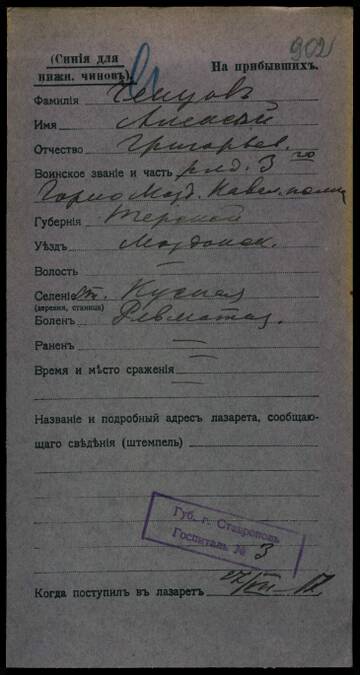 902
(Синія для
нижн. чиновъ).
На прибывшихъ.
Фамилія Ченцовъ
Имя Алексѣй
Отчество Григорьев.
Воинское званіе и часть ряд. 3го
Горно Мозд. Кавал. полка
Губернія Терской
Уѣздъ Моздокск.
Волость —
Селеніе ст. Курская
(деревня, станица)
Боленъ Ревматиз.
Раненъ —
Время и мѣсто сраженія —
Названіе и подробный адресъ лазарета, сообщаю-
щаго свѣдѣнія (штемпель)
Губ. г. Ставрополь
Госпиталь № 3
Когда поступилъ въ лазаретъ /VII–17